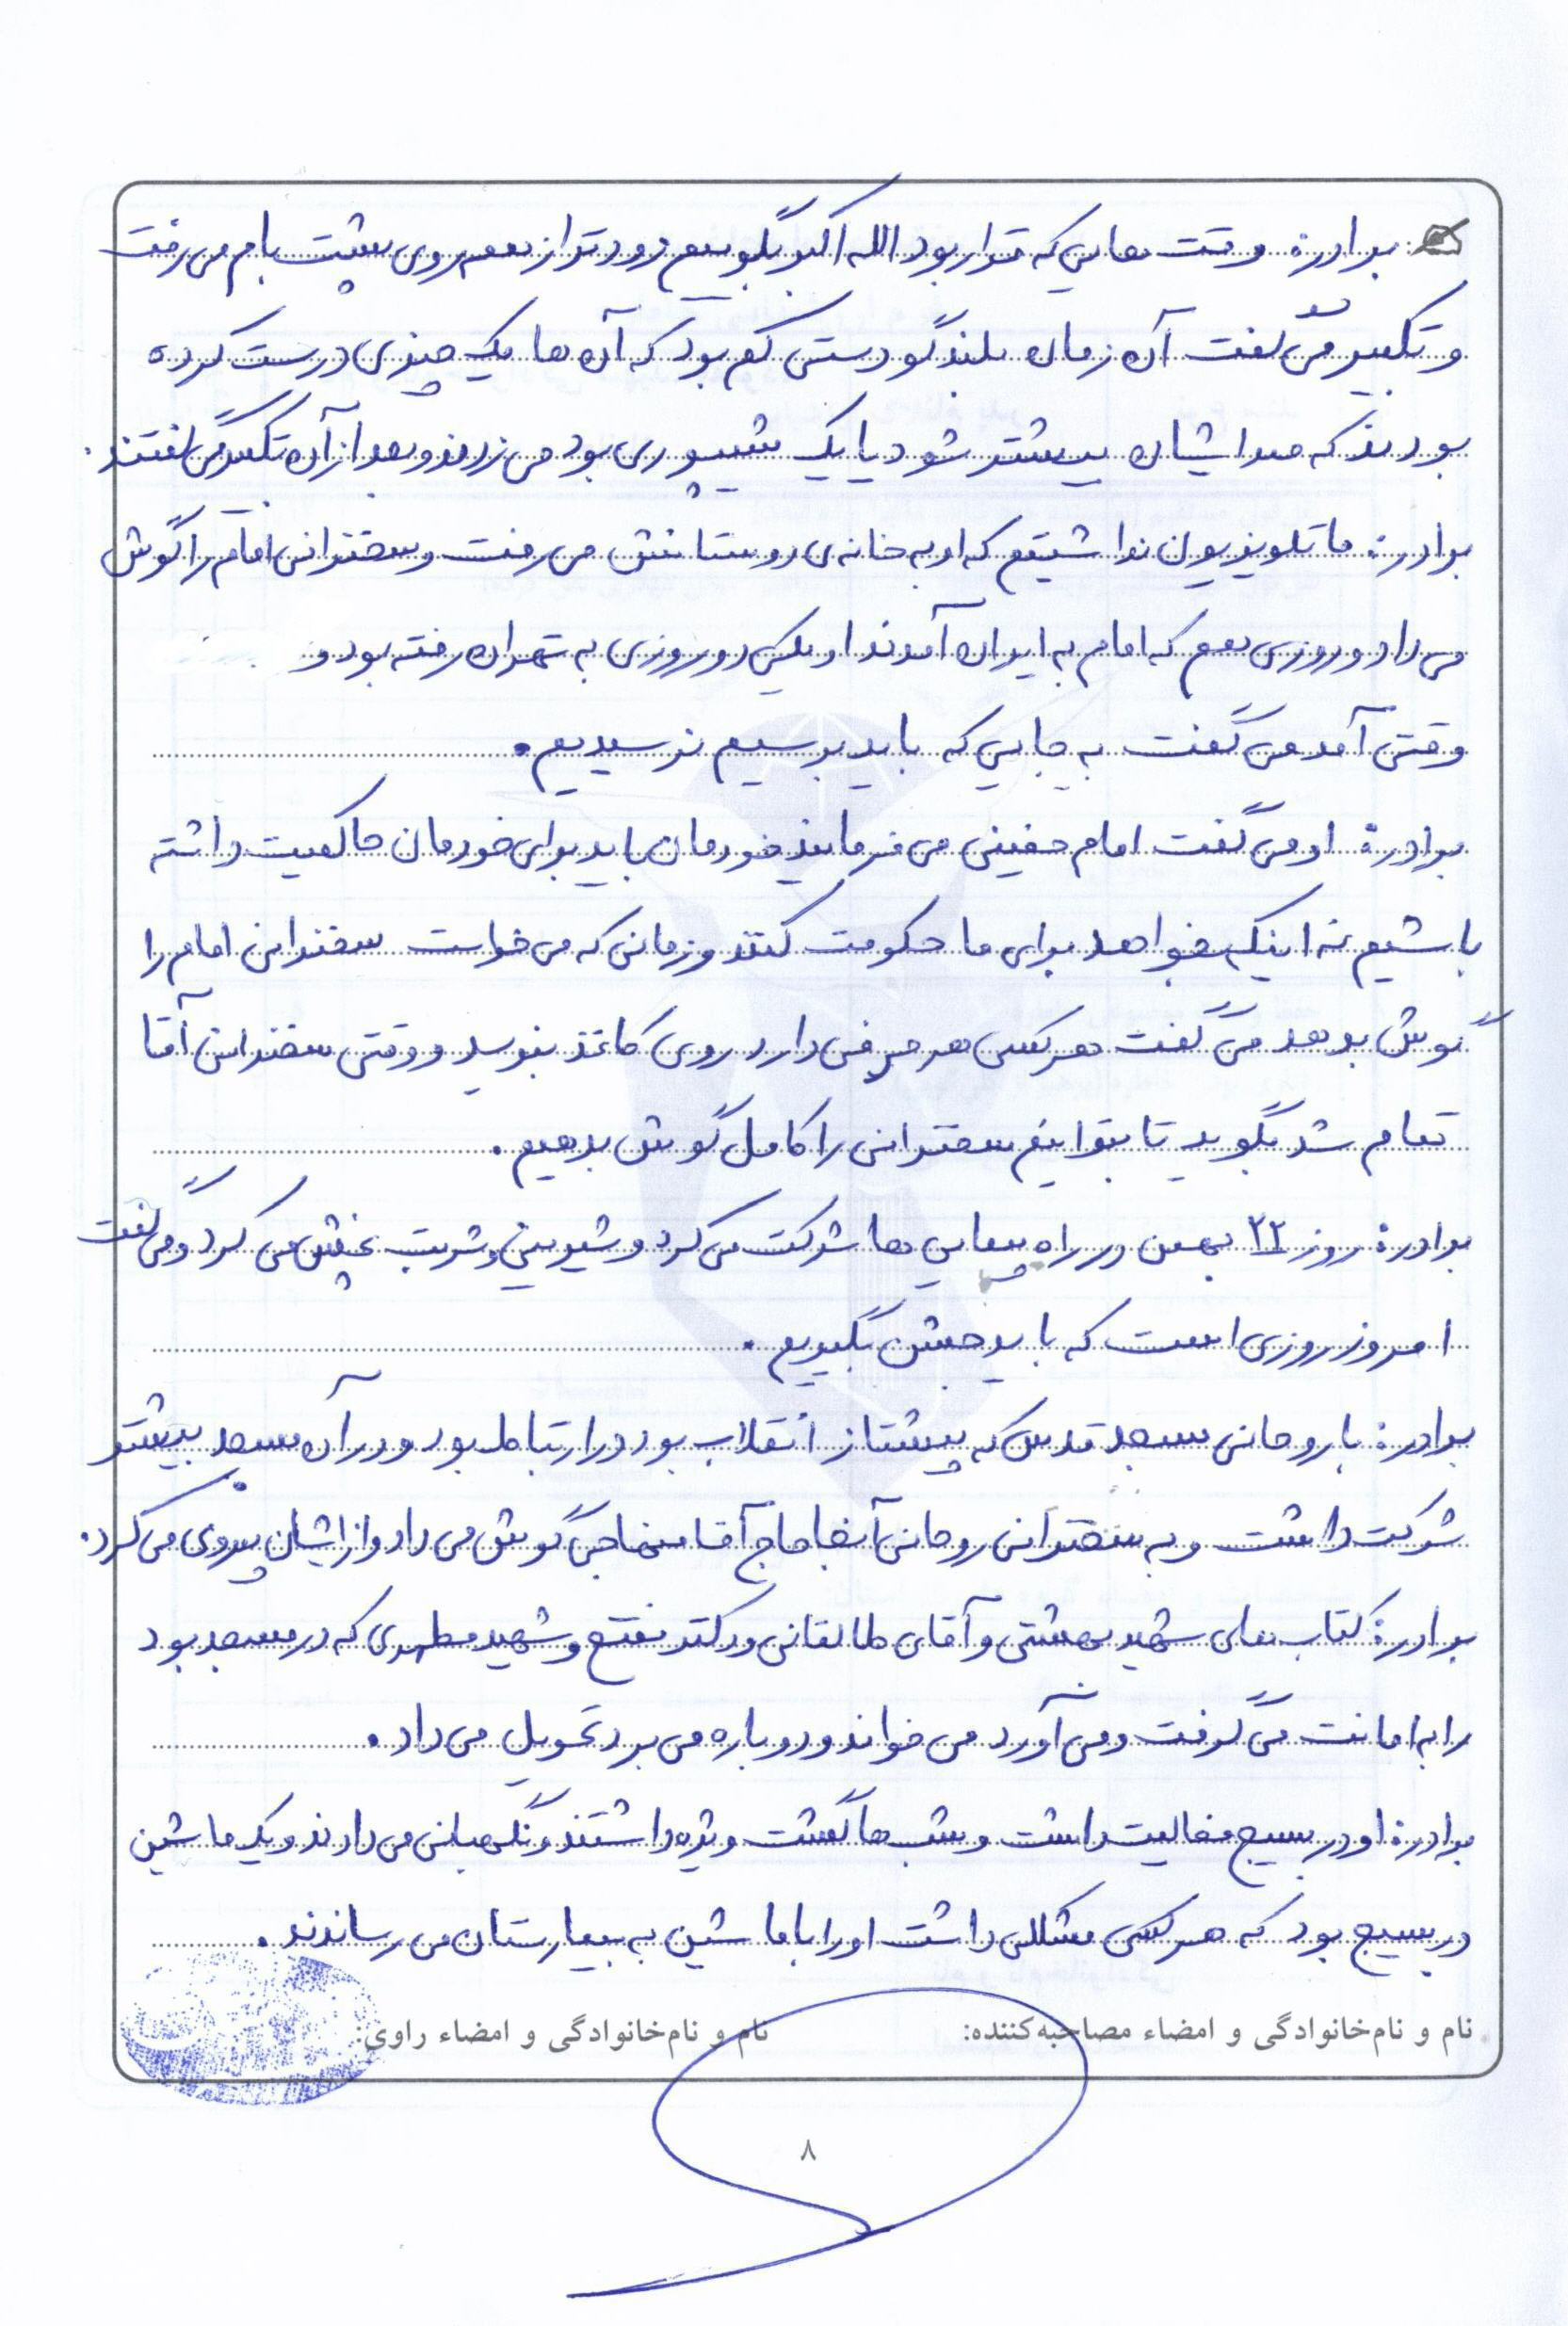 برادر: وقت هایی که قرار بود الله اکبر بگوییم زودتر از همه روی پشت بام می رفت
و تکبیر می گفت آن زمان بلندگو دستی کم بود که آن ها یک چیزی درست کرده
بودند که صدایشان بیشتر شود یا یک شیپوری بود می زدند و بعد از آن تکبیر می گفتند.
برادر: ما تلویزیون نداشتیم که او به خانه ی دوستانش می رفت و سخنرانی امام را گوش
می داد و روزی هم که امام به ایران آمدند او یکی دو روزی به تهران رفته بود و
وقتی آمد می گفت به جایی که باید برسیم رسیدیم.
برادر: او می گفت امام خمینی می فرمایند خودمان باید برای خودمان حاکمیت داشته
باشیم نه اینکه بخواهد برای ما حکومت کنند و زمانی که می خواست سخنرانی امام را
گوش بدهد می گفت هر کسی هر حرفی دارد روی کاغذ بنویسد و وقتی سخنرانی آقا
تمام شد بگوید تا بتوانیم سخنرانی را کامل گوش بدهیم.
برادر: روز ۲۲ بهمن در راه پیمایی ها شرکت می کرد و شیرینی و شربت پخش می کرد و می گفت
امروز روزی است که باید جشن بگیریم.
برادر: با روحانی مسجد قدس که پیشتاز انقلاب بود در ارتباط بود و در آن مسجد بیشتر
شرکت داشت و به سخنرانی روحانی آنجا حاج آقا منهاجی گوش می داد و از ایشان پیروی می کرد.
برادر: کتاب های شهید بهشتی و آقای طالقانی و دکتر مفتح و شهید مطهری که در مسجد بود
را به امانت می گرفت و می آورد می خواند و دوباره می برد تحویل می داد.
برادر: او در بسیج فعالیت داشت و شب ها گشت ویژه داشتند و نگهبانی می دادند و یک ماشین
در بسیج بود که هر کسی مشکلی داشت او را با ماشین به بیمارستان می رساندند.
نام و نام‌خانوادگی و امضاء مصاحبه‌کننده: نام و نام‌خانوادگی و امضاء راوی:
۸